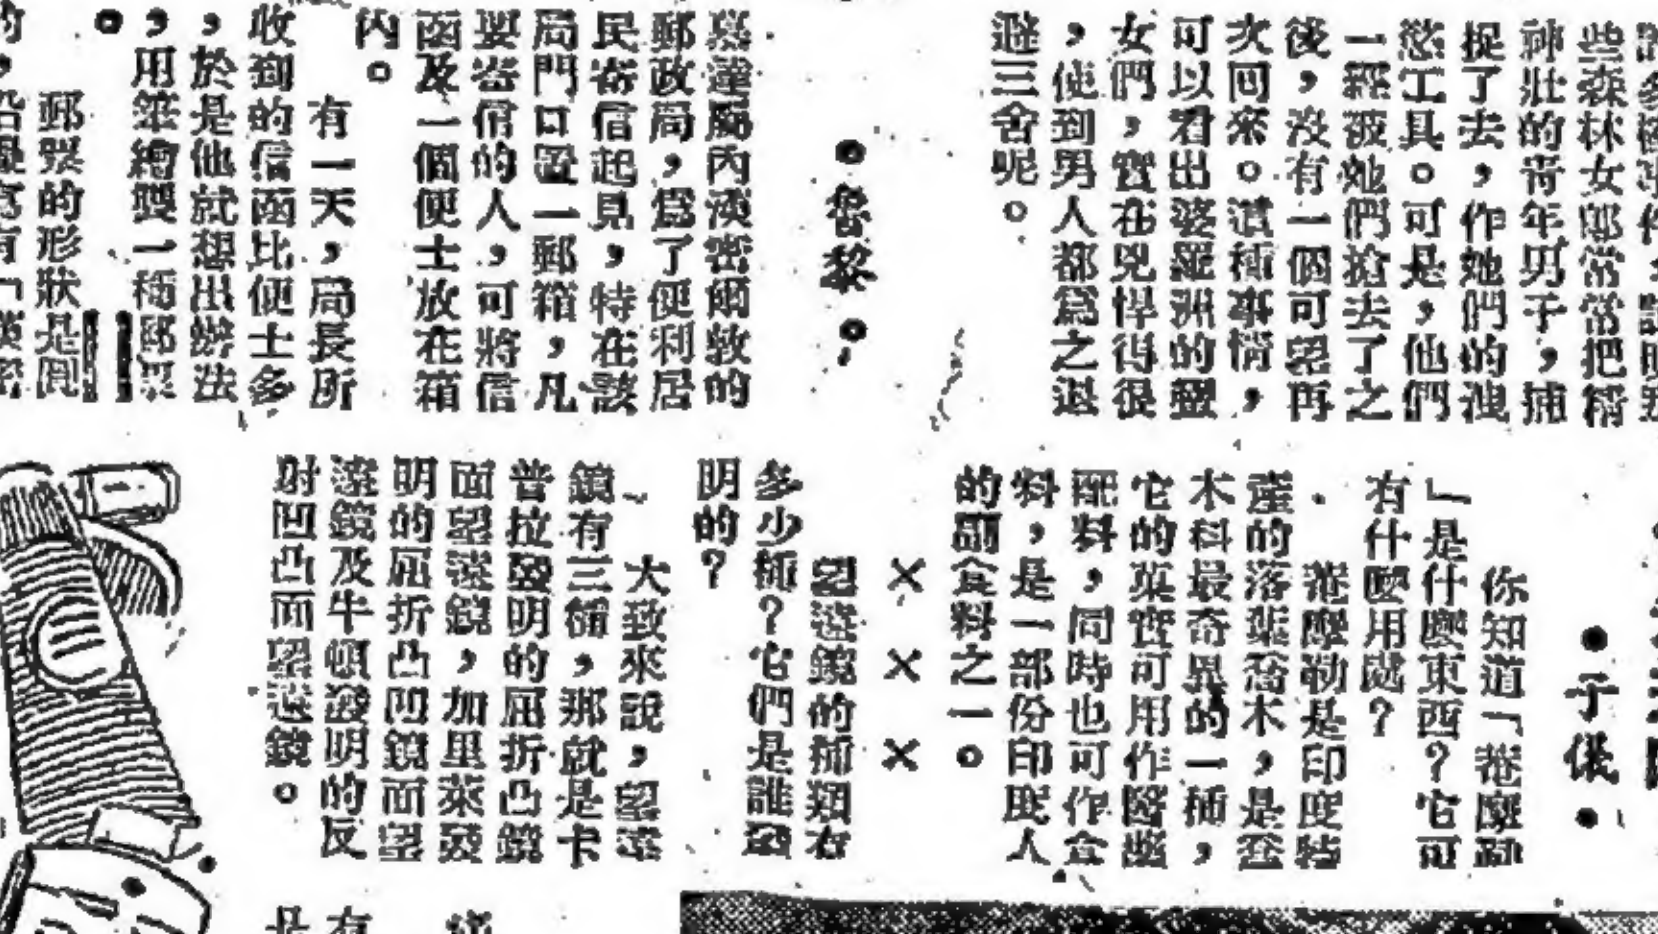 些森林女郎常常把精
神壯的靑年男子，捕
捉了去，作她們的洩
慾工具。可是，他們
一經被她們搶去了之
後，沒有一個可望再
次回來。這種事情，
可以看出婆羅洲的蠻
女們，實在兇悍得很
，使到男人都爲之退
避三舍呢。
•魯黎•
郵政局，爲了便利居
民寄信起見，特在該
局門口置一郵箱，凡
要寄信的人，可將信
函及一個便士放在箱
內。
有一天，局長所
收到的信函比便士多
，於是他就想出辦法
，用筆繪製一種郵票
。
郵票的形狀是圓
•子儀•
你知道「菴麼勒
」是什麼東西？它可
有什麼用處？
菴麼勒是印度特
產的落葉喬木，是
木科最奇異的一種，
它的菓實可用作醫藥
配料，同時也可作食
料，是一部份印度人
的副食料之一。
×　×　×
望遠鏡的種類有
多少種？它們是誰發
明的？
大致來說，望遠
鏡有三種，那就是卡
普拉發明的屈折凸鏡
面望遠鏡，加里萊發
明的屈折凸凹鏡面望
遠鏡及牛頓發明的反
射凹凸面望遠鏡。